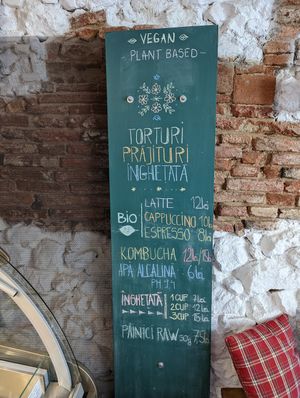 VEGAN
- PLANT BASED -
TORTURI
PRĂJITURI
ÎNGHEȚATĂ
BIO
LATTE 12LEI
CAPPUCCINO 10L
ESPRESSO 8LEI
KOMBUCHA 12LEI/18LEI
APA ALCALINA 6LEI
PH 9.4
ÎNGHEȚATĂ
1 CUP 7LEI
2 CUP 12LEI
3 CUP 15LEI
PÂINICI RAW 50g 7,5LEI